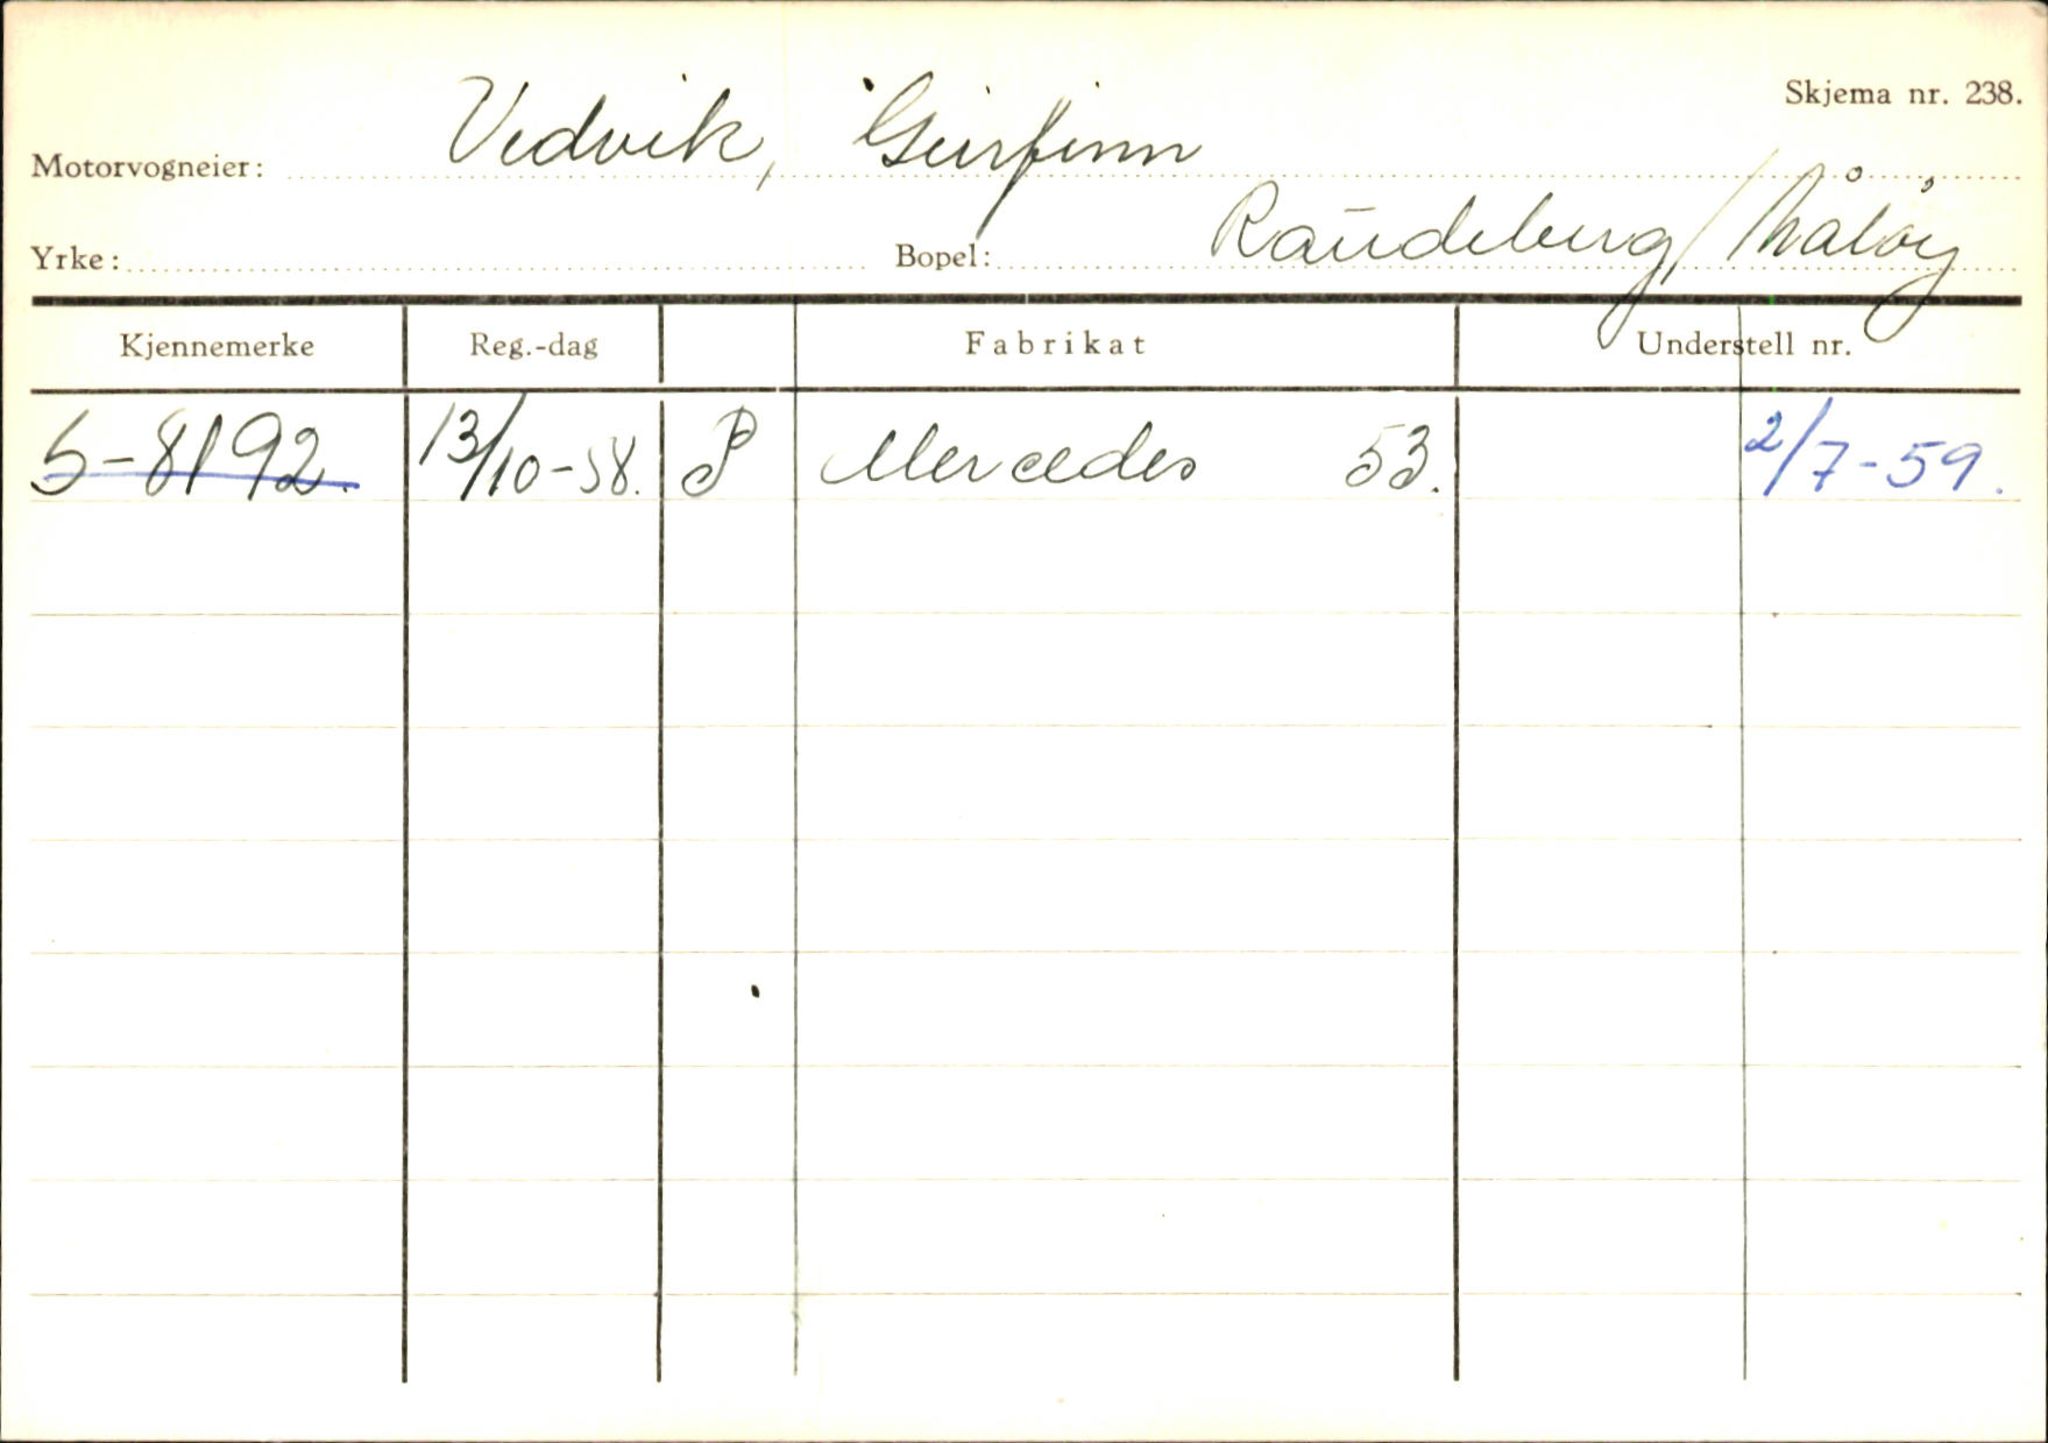 Skjema nr. 238.
Motorvogneier: Vedvik, Geirfinn
Yrke: Bopel: Raudeberg/Måløy
Kjennemerke Reg.-dag Fabrikat Understell nr.
S-8192. 13/10-58. P Mercedes 53. 2/7-59.